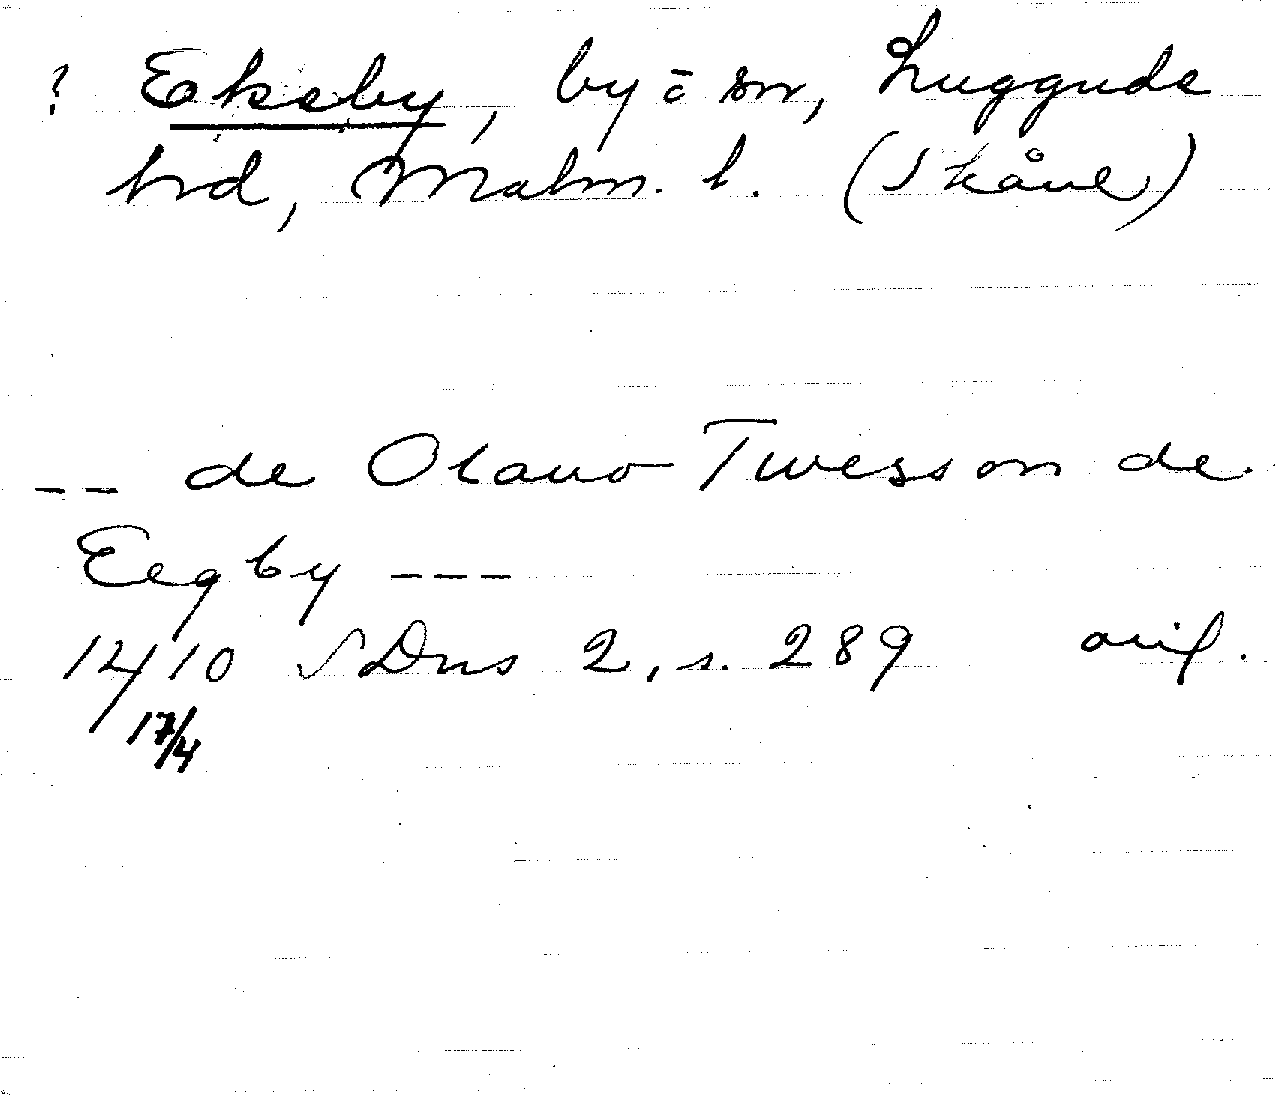 ? Ekeby, by o sn, Luggude
hrd, Malm. l. (Skåne)
-- de Olauo Twesson de
Eegby ---
1410 SDns 2, s. 289 orig.
17/4